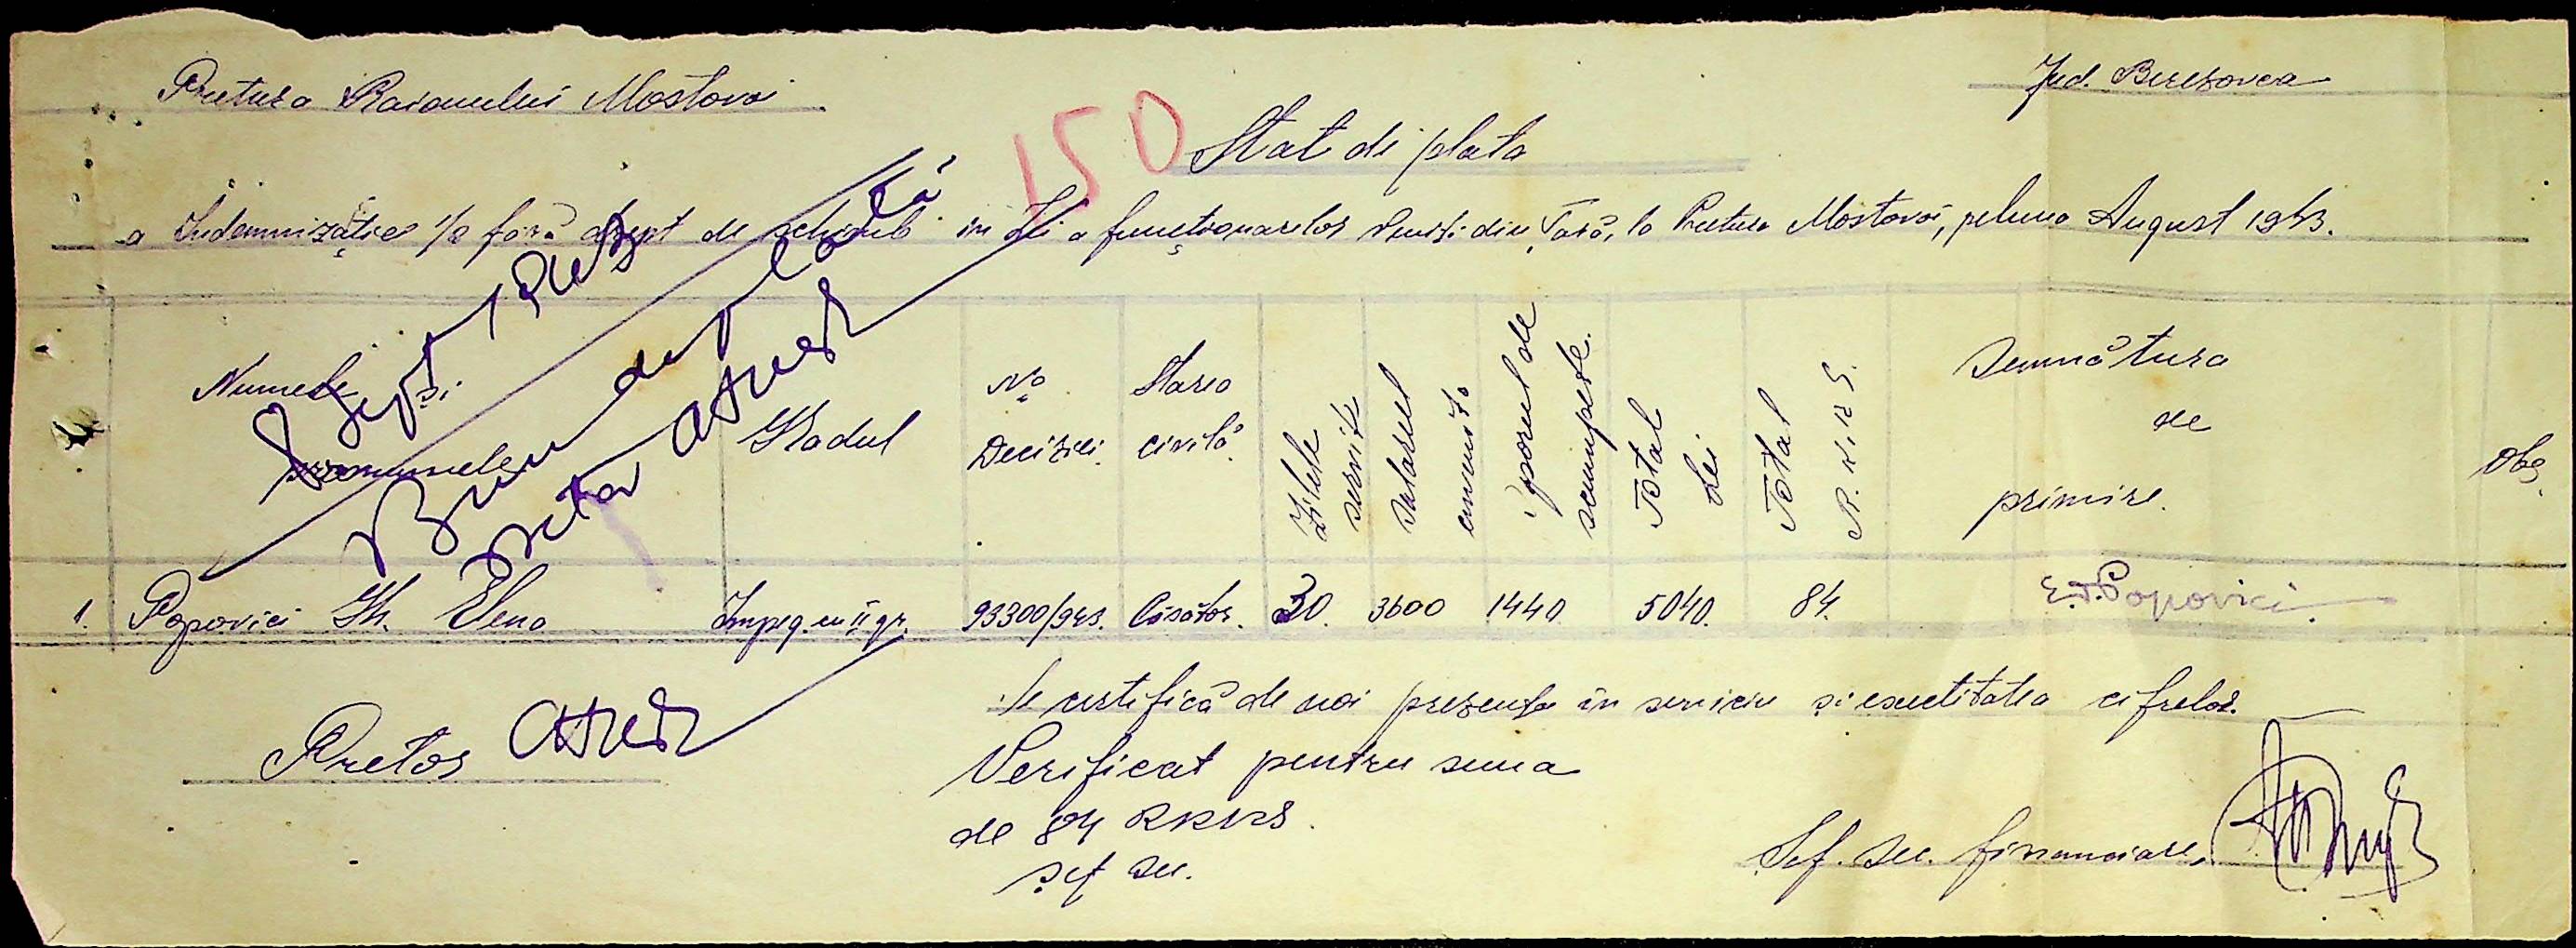 Pretura Raionului Mostovoi
Jud. Berezovca
150
Stat de plata
a Indemnizației fără drept de schimb in Lei a funcționarilor veniți din Țară, la Pretura Mostovoi, pe luna August 1943.
Numele și pronumele
Gradul
No Deciziei
Starea civilă
Zilele servite
Salarul
sporul de scumpete.
Total Lei
Total R.K.K.S.
Semnătura de primire.
Obs.
Sept
Bun de plată
Pretor
1. Popovici Gh. Elena
Impieg. cu II gr.
93300/943.
Căsător.
30.
3600
1440
5040.
84.
E. Popovici.
Se certifică de noi prezența în serviciu și exactitatea cifrelor.
Pretor
Verificat pentru suma
de 84 RKKS.
șef sec.
Șef. sec. financiare,